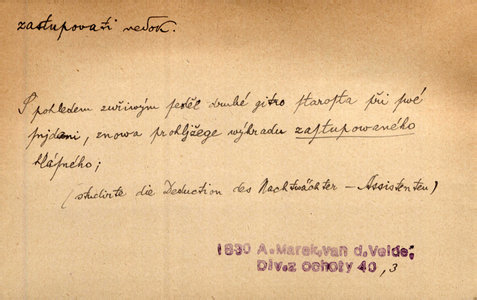 zastupovati nedok.
S pohledem zuřiwým seděl druhé gitro starosta při swé
snjdani, znowa prohljžege wýhradu zastupowaného
hlásného;
(studirte die Deduction des Nachtwächter - Assistenten)
1830 A. Marek, van d. Velde,
Div. z ochoty 40, 3